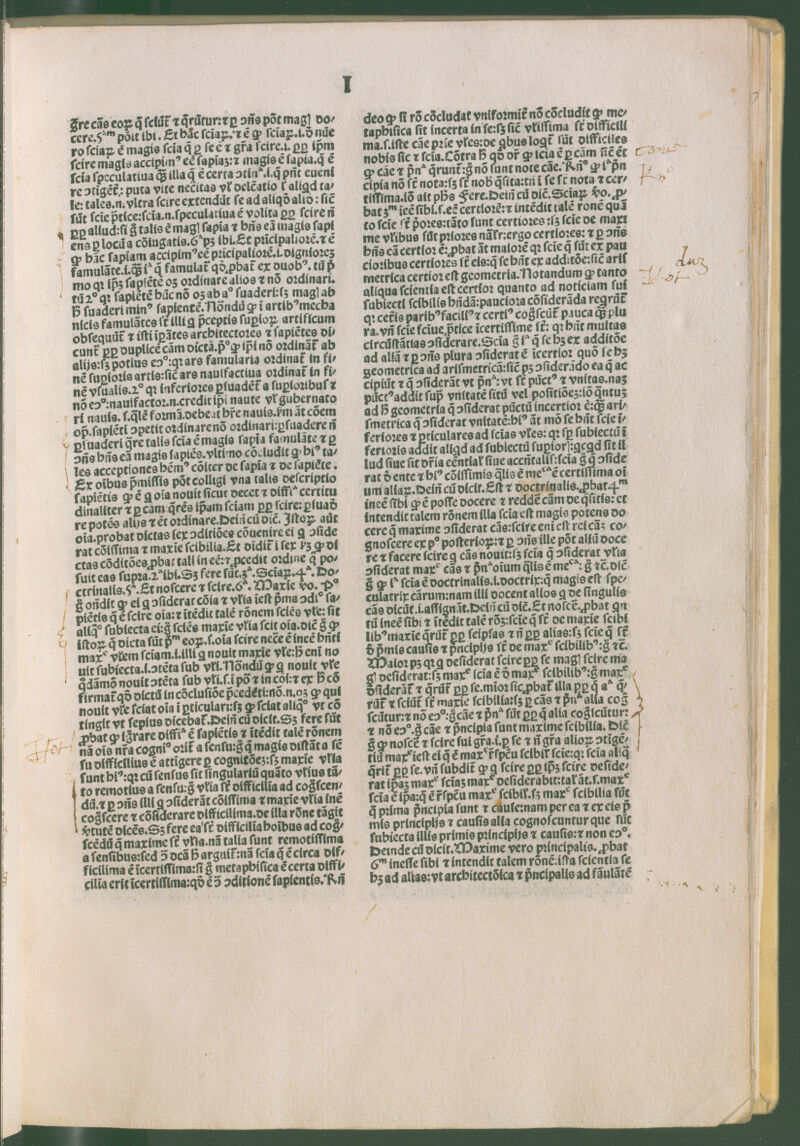 I
ḡre cãs eoꝝ q̃ sciũt̃ ⁊ q̃rũtur:⁊ ꝑ ↄñs põt magꝭ do/
cere.5ᵃᵐ põit ibi. Et hãc sciaꝝ.⁊ ẽ ꝙ sciaꝝ.i.õ nũe
ro sciaꝝ ẽ magis scia q̃ ꝑ se ẽ ⁊ gr̃a scire.i. ꝓꝑ ip̃m
scire magis accipimꝰ eẽ sapiaꝫ:⁊ magis ẽ sapia.q̃ ẽ
scia speculatiua q̃ꝫ illa q̃ ẽ certa
re ↄtigẽt̃: puta vite necitas vł delectatio ł aligd ta/
le: tales.n.vltra scire extendũt se ad aliqð alið: sic̃
sũt scie p̃tice:scia.n.speculatiua ẽ volita ꝓꝑ scire ñ
ꝓꝑ aliud:si g̃ talis ẽ magꝭ sapia ⁊ bñs eã magis sapi
ens ꝑ locũ a cõiugatis.6ᵃ pꝫ ibi.Et p̃ncipaliorẽ.⁊ ẽ
ꝙ hãc sapiam accipimꝰ eẽ p̃ncipaliorẽ.i.digniorẽ
famulãte.i.q̃ꝫ q̃ famulat̃ qð ꝓbat̃ ex duobꝰ. tũ p̃
mo qꝛ ip̃ꝫ sapiẽtẽ oꝫ ordinare alios ⁊ nõ ordinari.
tũ 2° qꝛ sapiẽtẽ hũc nõ oꝫ suaderi:sꝫ magꝭ ab
h̃ suaderi minꝰ sapientẽ. Nõndũ ꝙ i artibꝰ mecha
nicis famulãtes sñt illi q̃ p̃ceptis supioꝝ artificum
obsequũt̃ ⁊ isti ip̃ãtes architectores ⁊ sapiẽtes di/
cunt̃ ꝓꝑ duplicẽ cãm dictã.p̃° ꝙ ip̃i nõ ordinãt̃ ab
alijs:sꝫ potius eↄ°:qꝛ ars famularia ordinat̃ in fi/
nẽ supioris artis:sic̃ ars nauifactiua ordinat̃ in fi/
nẽ vsualis.2° qꝛ inferiores ꝑsuadẽt̃ a supioribus ⁊
nõ eↄ°:nauifactor.n.credit ip̃i naute vł gubernato
ri nauis. s.q̃lẽ formã.debeat hr̃e nauis.
op̃.sapiẽti ↄpetit ordinare nõ ordinari:ꝑsuadere ñ
ꝑsuaderi q̃re talis scia ẽ magis sapia famulãte ⁊ ꝑ
ↄñs bñs eã magis sapiẽs.vltimo cõcludit ꝙ hiꝰ ta/
les acceptiones hẽmꝰ cõiter de sapia ⁊ de sapiẽte.
Ex oĩbus p̃missis põt colligi vna talis descriptio
sapiẽtis ꝙ ẽ q̃ oia nouit sicut decet ⁊ diffiᵃ certitu
dinaliter ⁊ ꝑ cãm q̃rẽs ip̃am sciam ꝓꝑ scire:
re potẽs alijs ⁊ ẽt ordinare.Deiñ cũ dic̃. Istoꝝ aũt
oia.probat dictas sex ↄditiões cõuenire ei q̃ ↄside
rat cõissima ⁊ maxie scibilia.
ctas cõditiões,ꝓbat̃ tali in eẽ:⁊ ꝓcedit ordine q̃ po/
suit eas supra.2ᵃ ibi.Sꝫ fere sũt.3ᵃ.Sciaꝝ.4ᵃ.Do/
ctrinalis.5ᵃ.Et noscere ⁊ scire.6ᵃ. Maxie ꝟo.
g̃ oñdit ꝙ ei q̃ ↄsiderat cõia ⁊ vl̃ia iest p̃ma ↄdi° sa/
piẽtis q̃ ẽ scire oia:⁊ itẽdit talẽ rõnem sciẽs vl̃e: sit
aliqº subiecta ei:g̃ sciẽs maxie vl̃ia scit oia.dic̃ g̃ ꝙ
istoꝝ q̃ dicta sũt p̃ᵐ eoꝝ.s.oia scire necẽ ẽ inẽe hñti
maxᵉ vl̃em sciam.i.illi q̃ nouit maxie vl̃e:h̃ eni no
uit subiecta.i.ↄtẽta sub vl̃i.Nõndũ ꝙ q̃ nouit vl̃e
q̃dãmõ nouit ↄtẽta sub vl̃i.s.i põ ⁊ in cõi:⁊ ex h̃ cõ
firmat̃ qð dictũ in cõclusiõe p̃cedẽti:nõ.n.oꝫ ꝙ qui
nouit vl̃e sciat oia i ꝑticulari:sꝫ ꝙ sciat aliqº vt cõ
tingit vt sepius dicebat̃.Deiñ cũ dicit.Sꝫ fere sũt
ꝓbat ꝙ iḡrare diffiᵃ ẽ sapiẽtis ⁊ itẽdit talẽ rõnem
nã ois nr̃a cogni° oꝛit̃ a sensu:g̃ q̃ magis distãt a sẽ
su difficilius ẽ attigere ꝑ cognitiõeꝫ:sꝫ maxie vl̃ia
sunt hiꝰ:qꝛ cũ sensus sit singulariũ quãto vl̃ius tã/
to remotius a sensu:g̃ vl̃ia sñt difficilia ad cog̃scen/
dũ.⁊ ꝑ ↄñs illi q̃ ↄsiderãt cõissima ⁊ maxie vl̃ia inẽ
cog̃scere ⁊ cõsiderare difficilima.de illa rõne tãgit
ꝟtutẽ dicẽs.Sꝫ fere ea sñt difficilia hoibus ad cog̃/
scẽdũ q̃ maxime sñt vl̃ia.nã talia sunt remotissima
a sensibus:sed ↄ̃ dcã h̃ arguit̃:nã scia q̃ ẽ circa dif/
ficilima ẽ icertissima:si g̃ metaphisica ẽ certa diffi/
cilia erit icertissima:qð ẽ ↄ̃ ↄditionẽ sapientis.Rñ
deo ꝙ si rõ cõcludat vniformit̃ nõ cõcludit ꝙ me/
taphisica sit incerta in se:sꝫ sic̃ vl̃issima sñt difficili
ma.s.iste cãe p̃:ie vl̃es:de gbus logt̃ sũt difficiles
nobis sic ⁊ scia.Cõtra h̃ qð or̃ ꝙ scia ẽ ꝑ cãm sic̃ ẽt
ꝙ cãe ⁊ p̃nᵃ q̃runt̃:g̃ nõ sunt note cãe.Rñ° ꝙ iᵃ p̃n
cipia nõ sñt nota:sꝫ sñt nob̃ q̃sita:tñ i se sñt nota ⁊ cer/
tissima.iõ ait ph̃s Fere.Deiñ cũ dic̃.Sciaꝝ ꝟo.ꝓ/
bat 3ᵐ ieẽ sibi.s.eẽ certiorẽ:⁊ intẽdit talẽ ronẽ quã
to scie sñt p̃ores:tãto sunt certiores:sꝫ scie de maxi
me vl̃ibus sũt priores nãłr:ergo certiores:⁊ ꝑ ↄñs
bñs eã certior ẽ:ꝓbat ãt maiorẽ qꝛ scie q̃ sũt ex pau
cioribus certiores sñt eis:q̃ se hñt ex additõe:sic̃ aris
metrica certior est geometria.Notandum ꝙ tanto
aliqua scientia est certior quanto ad noticiam sui
subiecti scibilis hñdã:pauciora cõsiderãda reg̃rũt̃
qꝛ certis paribꝰ facilꝰ ⁊ certꝰ cog̃scũt̃ pauca q̃ꝫ plu
ra.vñ scie sciue,p̃tice icertissime sñt: qꝛ hñt multas
circũstãtias ↄsiderare.Scia g̃ iᵃ q̃ se hꝫ ex additõe
ad aliã ⁊ ꝑ ↄñs plura ↄsiderat ẽ icertior quõ se hꝫ
geometrica ad arismetricã:sic̃ pꝫ ↄsiderãdo ea q̃ ac
cipiũt ⁊ q̃ ↄsiderãt vt p̃nᵃ:vt sñt pũctᵃ ⁊ vnitas.naꝫ
pũctꝰ addit sup̃ vnitatẽ sitũ vel positiõeꝫ:iõ q̃ntuꝫ
ad h̃ geometria q̃ ↄsiderat pũctũ incertior ẽ:q̃ꝫ ari/
smetrica q̃ ↄsiderat vnitatẽ:hiꝰ ãt mõ se hñt scie i/
feriores ⁊ ꝑticulares ad scias vl̃es:qꝛ sꝑ subiectũ i
ferioris addit aligd ad subiectũ supioꝝ:gcgd sit il
lud siue sit dr̃ia cẽntialꝭ siue accñtalꝭ:scia g̃ q̃ ↄside
rat õ ente ⁊ hiꝰ cõissimis q̃lis ẽ meᵗᵃ ẽ certissima oi
um aliaꝝ.Deiñ cũ dicit.Est ⁊ doctrinalis.ꝓbat 4ᵐ
inẽe sibi ꝙ ẽ posse docere ⁊ reddẽ cãm de q̃sitis:et
intendit talem rõnem illa scia est magis potens do
cere q̃ maxime ↄsiderat cãs:scire eni est rei cãꝫ co/
gnoscere ex p° posterioꝝ:⁊ ꝑ ↄñs ille põt aliũ doce
re ⁊ facere scire q̃ cãs nouit:sꝫ scia q̃ ↄsiderat vl̃ia
ↄsiderat maxᵉ cãs ⁊ p̃nᵃ oium q̃lis ẽ meᵗᵃ:g̃ ⁊c̃.dic̃
g̃ ꝙ iᵃ scia ẽ doctrinalis.i.doctrix:q̃ magis est spe/
culatrix cãrum:nam illi docent alios q̃ de singulis
cãs dicũt.i.assignãt.Deiñ cũ dic̃.Et noscẽ,ꝓbat gn
tũ ineẽ sibi ⁊ itẽdit talẽ rõꝫ:scie q̃ sñt de maxie scibi
libꝰ maxie q̃rũt̃ ꝓꝑ seipsas ⁊ ñ ꝓꝑ alias:sꝫ scie q̃ sñt
õ p̃mis causis ⁊ p̃ncipijs sñt de maxᵉ scibilibꝰ:g̃ ⁊c̃.
Maior pꝫ qꝛ q̃ desiderat scire ꝓꝑ se magꝭ scire ma
gꝭ desiderat:sꝫ maxᵉ scia ẽ õ maxᵉ scibilibꝰ:g̃ maxᵉ
desiderãt̃ ⁊ q̃rũt̃ ꝓꝑ se.
rũt̃ ⁊ sciũt̃ sñt maxie scibilia:sꝫ ꝑ cãs ⁊ p̃nᵃ alia cog̃
scũtur:⁊ nõ eↄ°:g̃ cãe ⁊ p̃nᵃ sũt ꝓꝑ q̃ alia cog̃scũtur:
⁊ nõ eↄ°.g̃ cãe ⁊ p̃ncipia sunt maxime scibilia. Dic̃
g̃ ꝙ noscẽ ⁊ scire sui gr̃a.i.ꝑ se ⁊ ñ gr̃a alioꝝ ↄtigẽ/
tiũ maxᵉ iest ei q̃ ẽ maxᵉ r̃spcũ scibilꝭ scie:qꝛ scia aliq̃
q̃rit̃ ꝓꝑ se.vñ subdit̃ ꝙ q̃ scire ꝓꝑ ip̃ꝫ scire deside/
rat ipaꝫ maxᵉ sciaꝫ maxᵉ desiderabit:talꝭ ãt.s.maxᵉ
scia ẽ ip̃a:q̃ ẽ r̃spcũ maxᵉ scibilꝭ.sꝫ maxᵉ scibilia sũt
q̃ prima p̃ncipia sunt ⁊ cause:nam per ea ⁊ ex eis p̃
mis principijs ⁊ causis alia cognoscuntur que sũt
subiecta illis primis principijs ⁊ causis:⁊ non eↄ°.
Deinde cũ dicit.Maxime vero principalis.ꝓbat
6ᵐ inesse sibi ⁊ intendit talem rõnẽ:ista scientia se
hꝫ ad alias:vt architectõica ⁊ p̃ncipalis ad fãulãtẽ